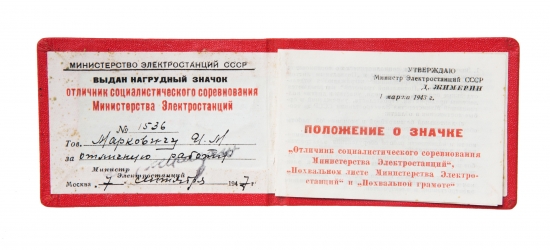 МИНИСТЕРСТВО ЭЛЕКТРОСТАНЦИЙ СССР
ВЫДАН НАГРУДНЫЙ ЗНАЧОК
ОТЛИЧНИК СОЦИАЛИСТИЧЕСКОГО СОРЕВНОВАНИЯ
Министерства Электростанций
№ 1536
Тов. Марковичу И.М
за отличную работу
Министр
Электростанций
Москва 7 сентября 1947 г.
УТВЕРЖДАЮ
Министр Электростанций СССР
Д. ЖИМЕРИН
1 марта 1943 г.
ПОЛОЖЕНИЕ О ЗНАЧКЕ
„Отличник социалистического соревнования
Министерства Электростанций",
„Похвальном листе Министерства Электро-
станций" и „Похвальной грамоте"